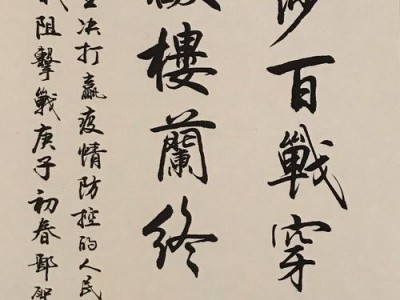 沙百戰穿
破樓蘭終
决打贏疫情防控的人民
阻擊戰庚子初春